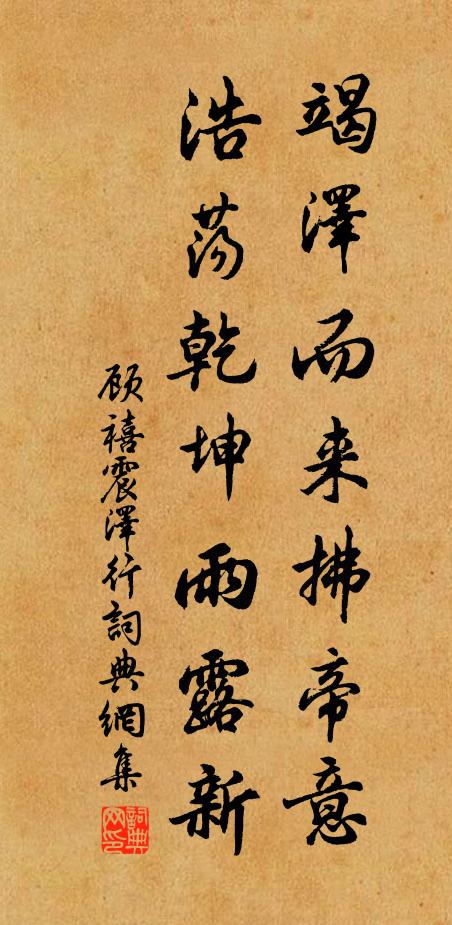 竭澤而来拂帝意
浩荡乾坤雨露新
顾禧震澤行詞典網集
詞典網印